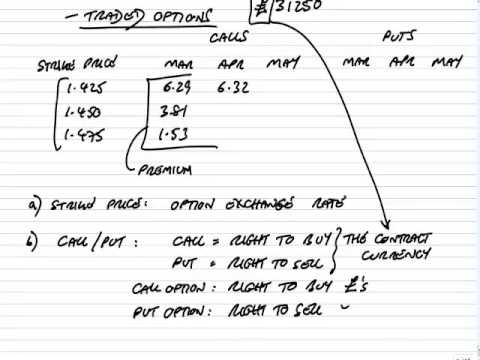 - TRADED OPTIONS £31250
CALLS PUTS
STRIKE PRICE MAR APR MAY MAR APR MAY
1.425 6.29 6.32
1.450 3.81
1.475 1.53
PREMIUM
a) STRIKE PRICE: OPTION EXCHANGE RATE
b) CALL/PUT: CALL = RIGHT TO BUY THE CONTRACT
PUT = RIGHT TO SELL CURRENCY
CALL OPTION: RIGHT TO BUY £'s
PUT OPTION: RIGHT TO SELL "